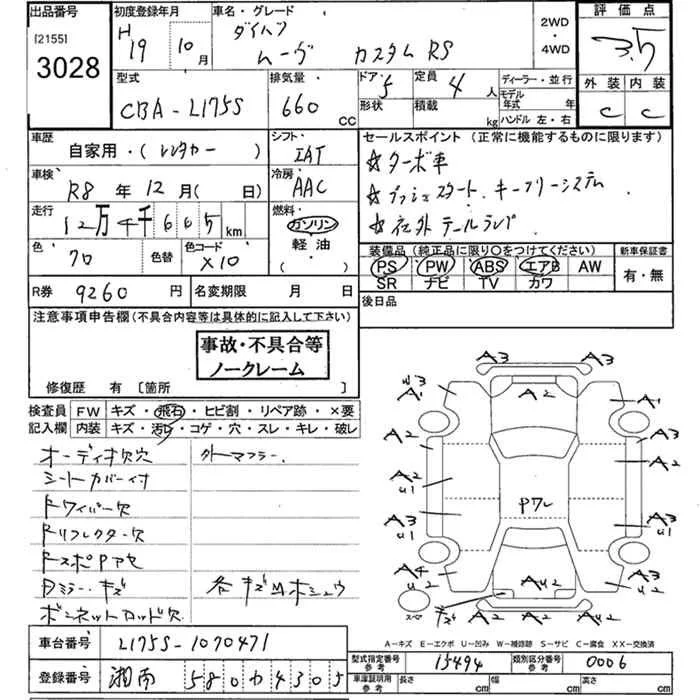 出品番号 初度登録年月 車名・グレード 2WD・4WD 評価点
[2155]
3028
H19 10月
ダイハツ
ムーヴ カスタム RS
3.5
外装 内装
C C
型式 排気量 ドア 定員 ディーラー・並行
CBA-L175S 660 CC 5 4人
モデル年式 年
形状 積載 kg ハンドル 左・右
車歴 シフト セールスポイント(正常に機能するものに限ります)
自家用・(レンタカー) IAT
☆ターボ車
車検 R8年12月(日) 冷房 AAC
☆プッシュスタート、キーフリーシステム
走行 12万4千665km 燃料 ガソリン 軽油 ( )
☆社外テールランプ
色 クロ 色替 色コード X10
装備品(純正品に限り○をつけてください) 新車保証書
PS PW ABS エアB AW 有・無
SR ナビ TV カワ
R券 9260円 名変期限 月 日
後日品
注意事項申告欄(不具合内容等は具体的に記入して下さい)
事故・不具合等
ノークレーム
修復歴 有 [箇所 ]
検査員記入欄 FW キズ・飛石・ヒビ割・リペア跡・×要
内装 キズ・汚レ・コゲ・穴・スレ・キレ・破レ
オーディオ欠穴 外マフラー.
シートカバー付
Rワイパー欠
Rリフレクター欠
RスポPアセ
ミラーキズ
ボンネットロッド欠
A3 A3
W3
A1 A2 A1
A2 A3
A2
A2 U1
Pワレ
A3 U1 A3 U1
A4 U2 A2 U2
AU2 AU2
キズ A2 A2
スペア
A-キズ E-エクボ U-凹み W-補修跡 S-サビ C-腐食 XX-交換済
車台番号 L175S-1070471
型式指定番号 参考 15494 類別区分番号 参考 0006
登録番号 湘南 580 4305
車庫証明用 参考 長さ cm 幅 cm 高さ cm